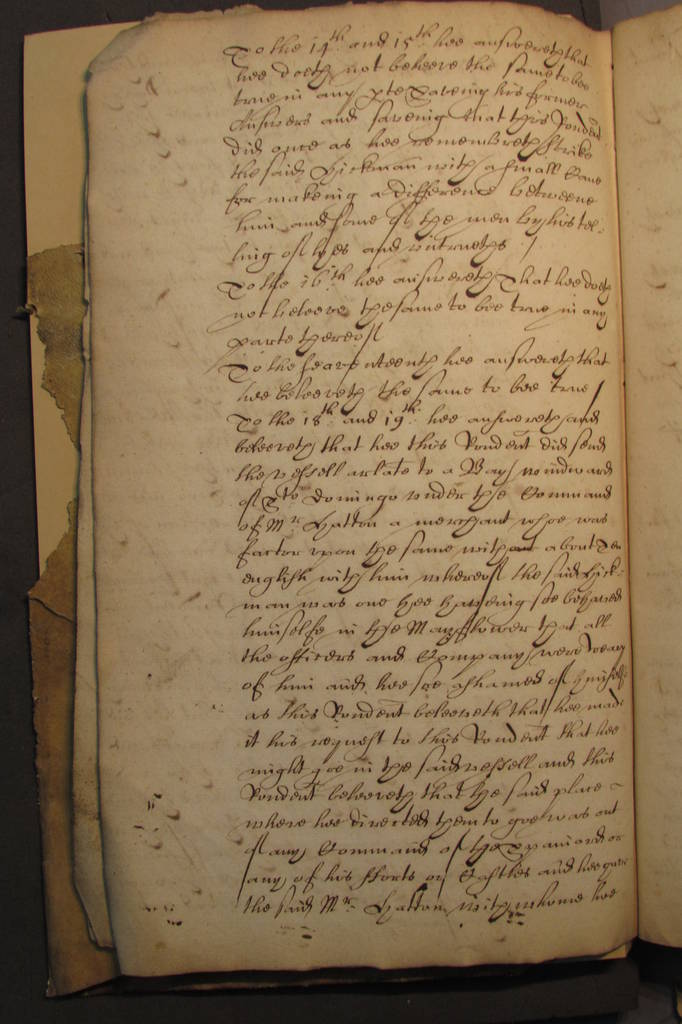 To the 14th: and 15th: hee answereth that
hee doeth not beleeve the same to bee
true in any pte Saveing his former
Answers and saveing that this Rondent
did once as hee remembreth strike
the said Hickman with a small Cane
for makeing a difference betweene
him and some of the men by his tel-
ling of lyes and untrueths /
To the 16th: hee answereth That hee doeth
not beleeve the same to bee true in any
parte thereof
To the seaventeenth hee answereth that
hee beleeveth the same to bee true /
To the 18th: and 19th: hee answereth and
beleeveth that hee this Rondent did send
the vessell arlate to a Bay windward
of Sto Domingo under the Command
of Mr: Hatton a merchant whoe was
factor upon the same with about Ten
english with him whereof the said Hick-
man was one hee haveing soe behaved
himselfe in the Mayflower that all
the officers and Company were weary
of him and hee soe ashamed of himselfe
as this Rondent beleeveth that hee made
it his request to this Rondent that hee
might goe in the said vessell and this
Rondent beleeveth that the said place
where hee directed them to goe was out
of any Command of the Spaniards or
any of his fforts or Castles and hee gave
the said Mr: Hatton with whome hee